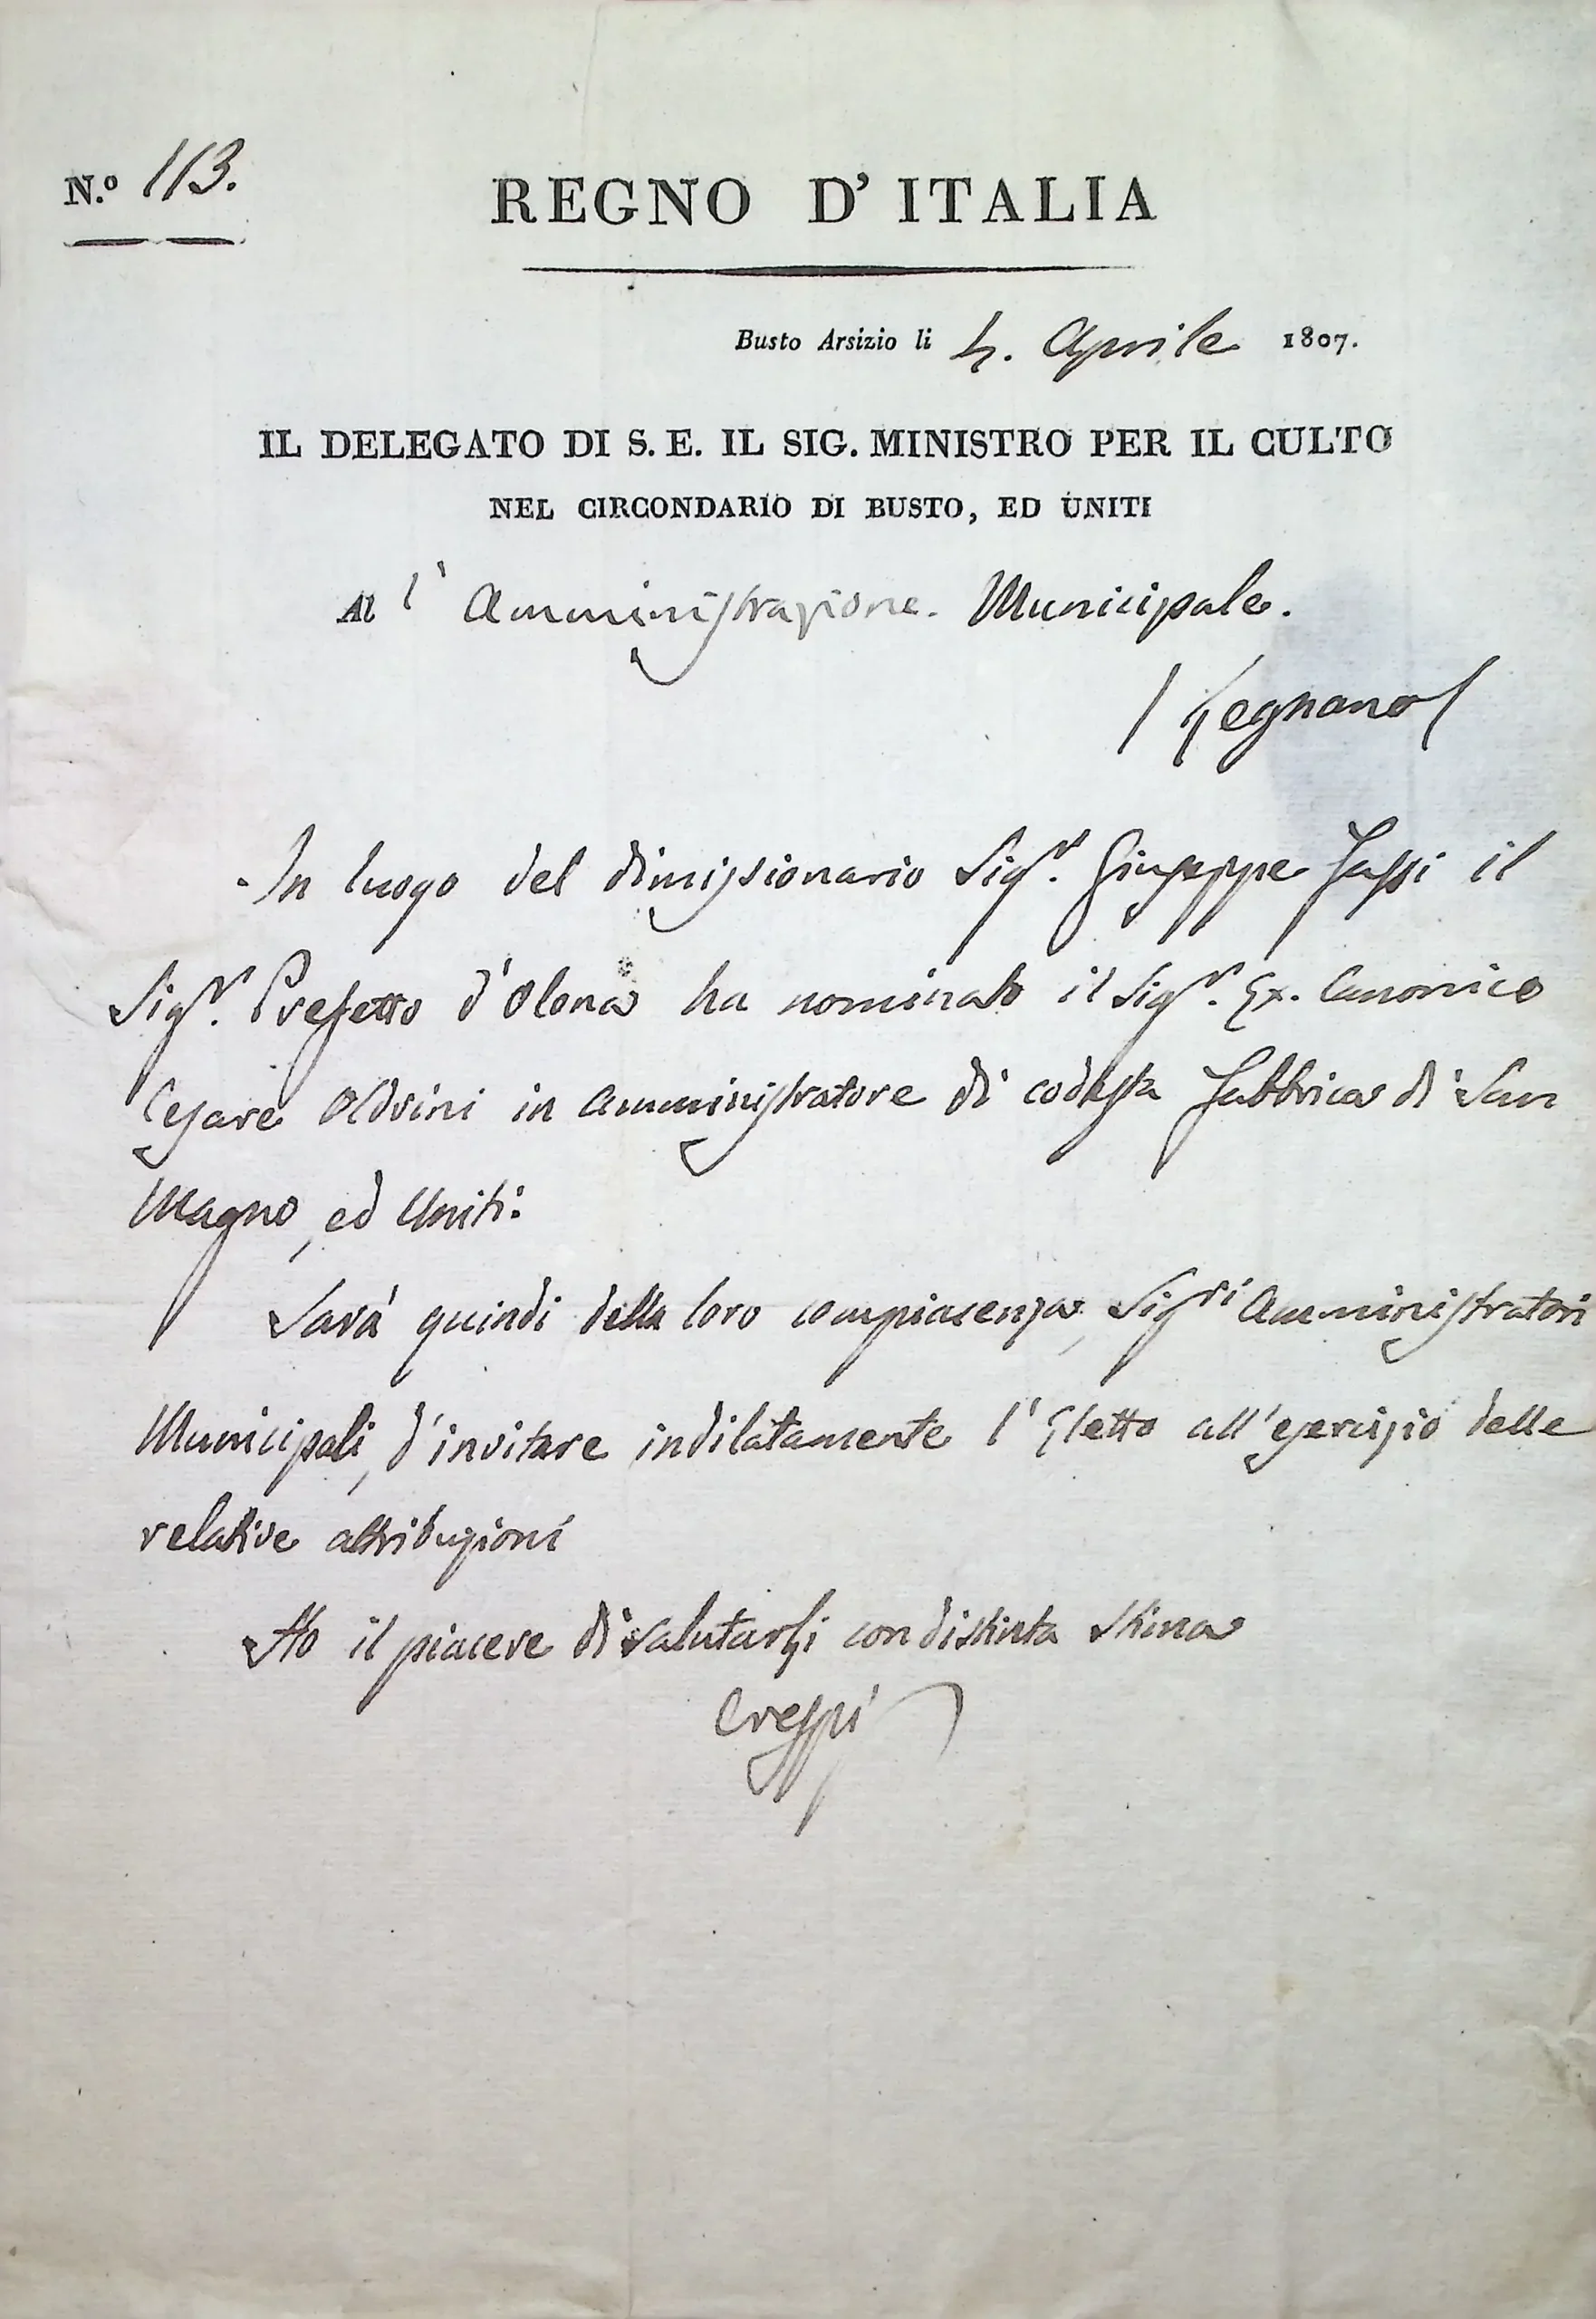 N.º 113.
REGNO D'ITALIA
Busto Arsizio li 4. Aprile 1807.
IL DELEGATO DI S. E. IL SIG. MINISTRO PER IL CULTO
NEL CIRCONDARIO DI BUSTO, ED UNITI
All' Amministrazione Municipale.
Legnano
In luogo del dimissionario Sigr. Giuseppe il
Sigr. Prefetto d'Olona ha nominato il Sigr. Ex. Canonico
Cesare Oldrini in Amministratore di codesta Fabbrica di San
Magno, ed Uniti.
Sarà quindi della loro compiacenza, Sigri Amministratori
Municipali, d'invitare indilatamente l'Eletto all'esercizio delle
relative attribuzioni
Ho il piacere di salutarli con distinta stima
Crespi